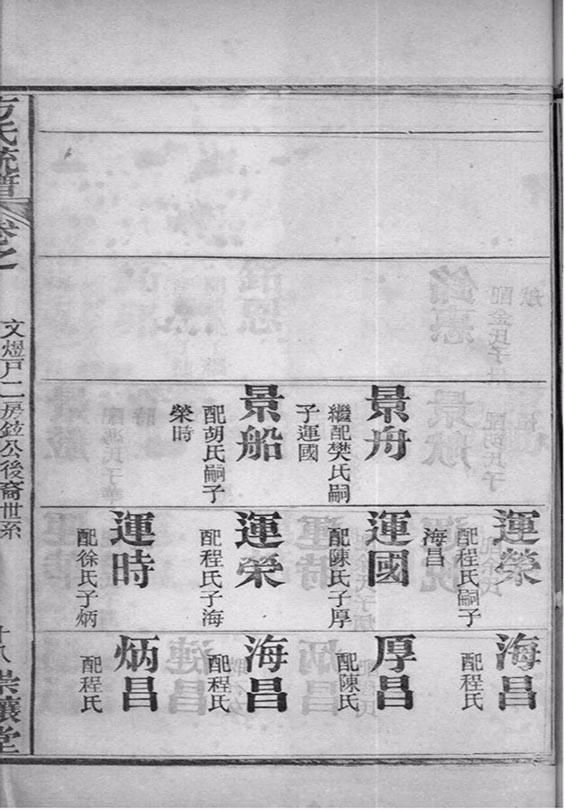 景舟
繼配樊氏嗣
子運國
景船
配胡氏嗣子
榮時
運榮
配程氏嗣子
海昌
運國
配陳氏子厚
運榮
配程氏子海
運時
配徐氏子炳
海昌
配程氏
厚昌
配陳氏
海昌
配程氏
炳昌
配程氏
方氏統譜
卷之
文煜戶二房鉉公後裔世系
十八